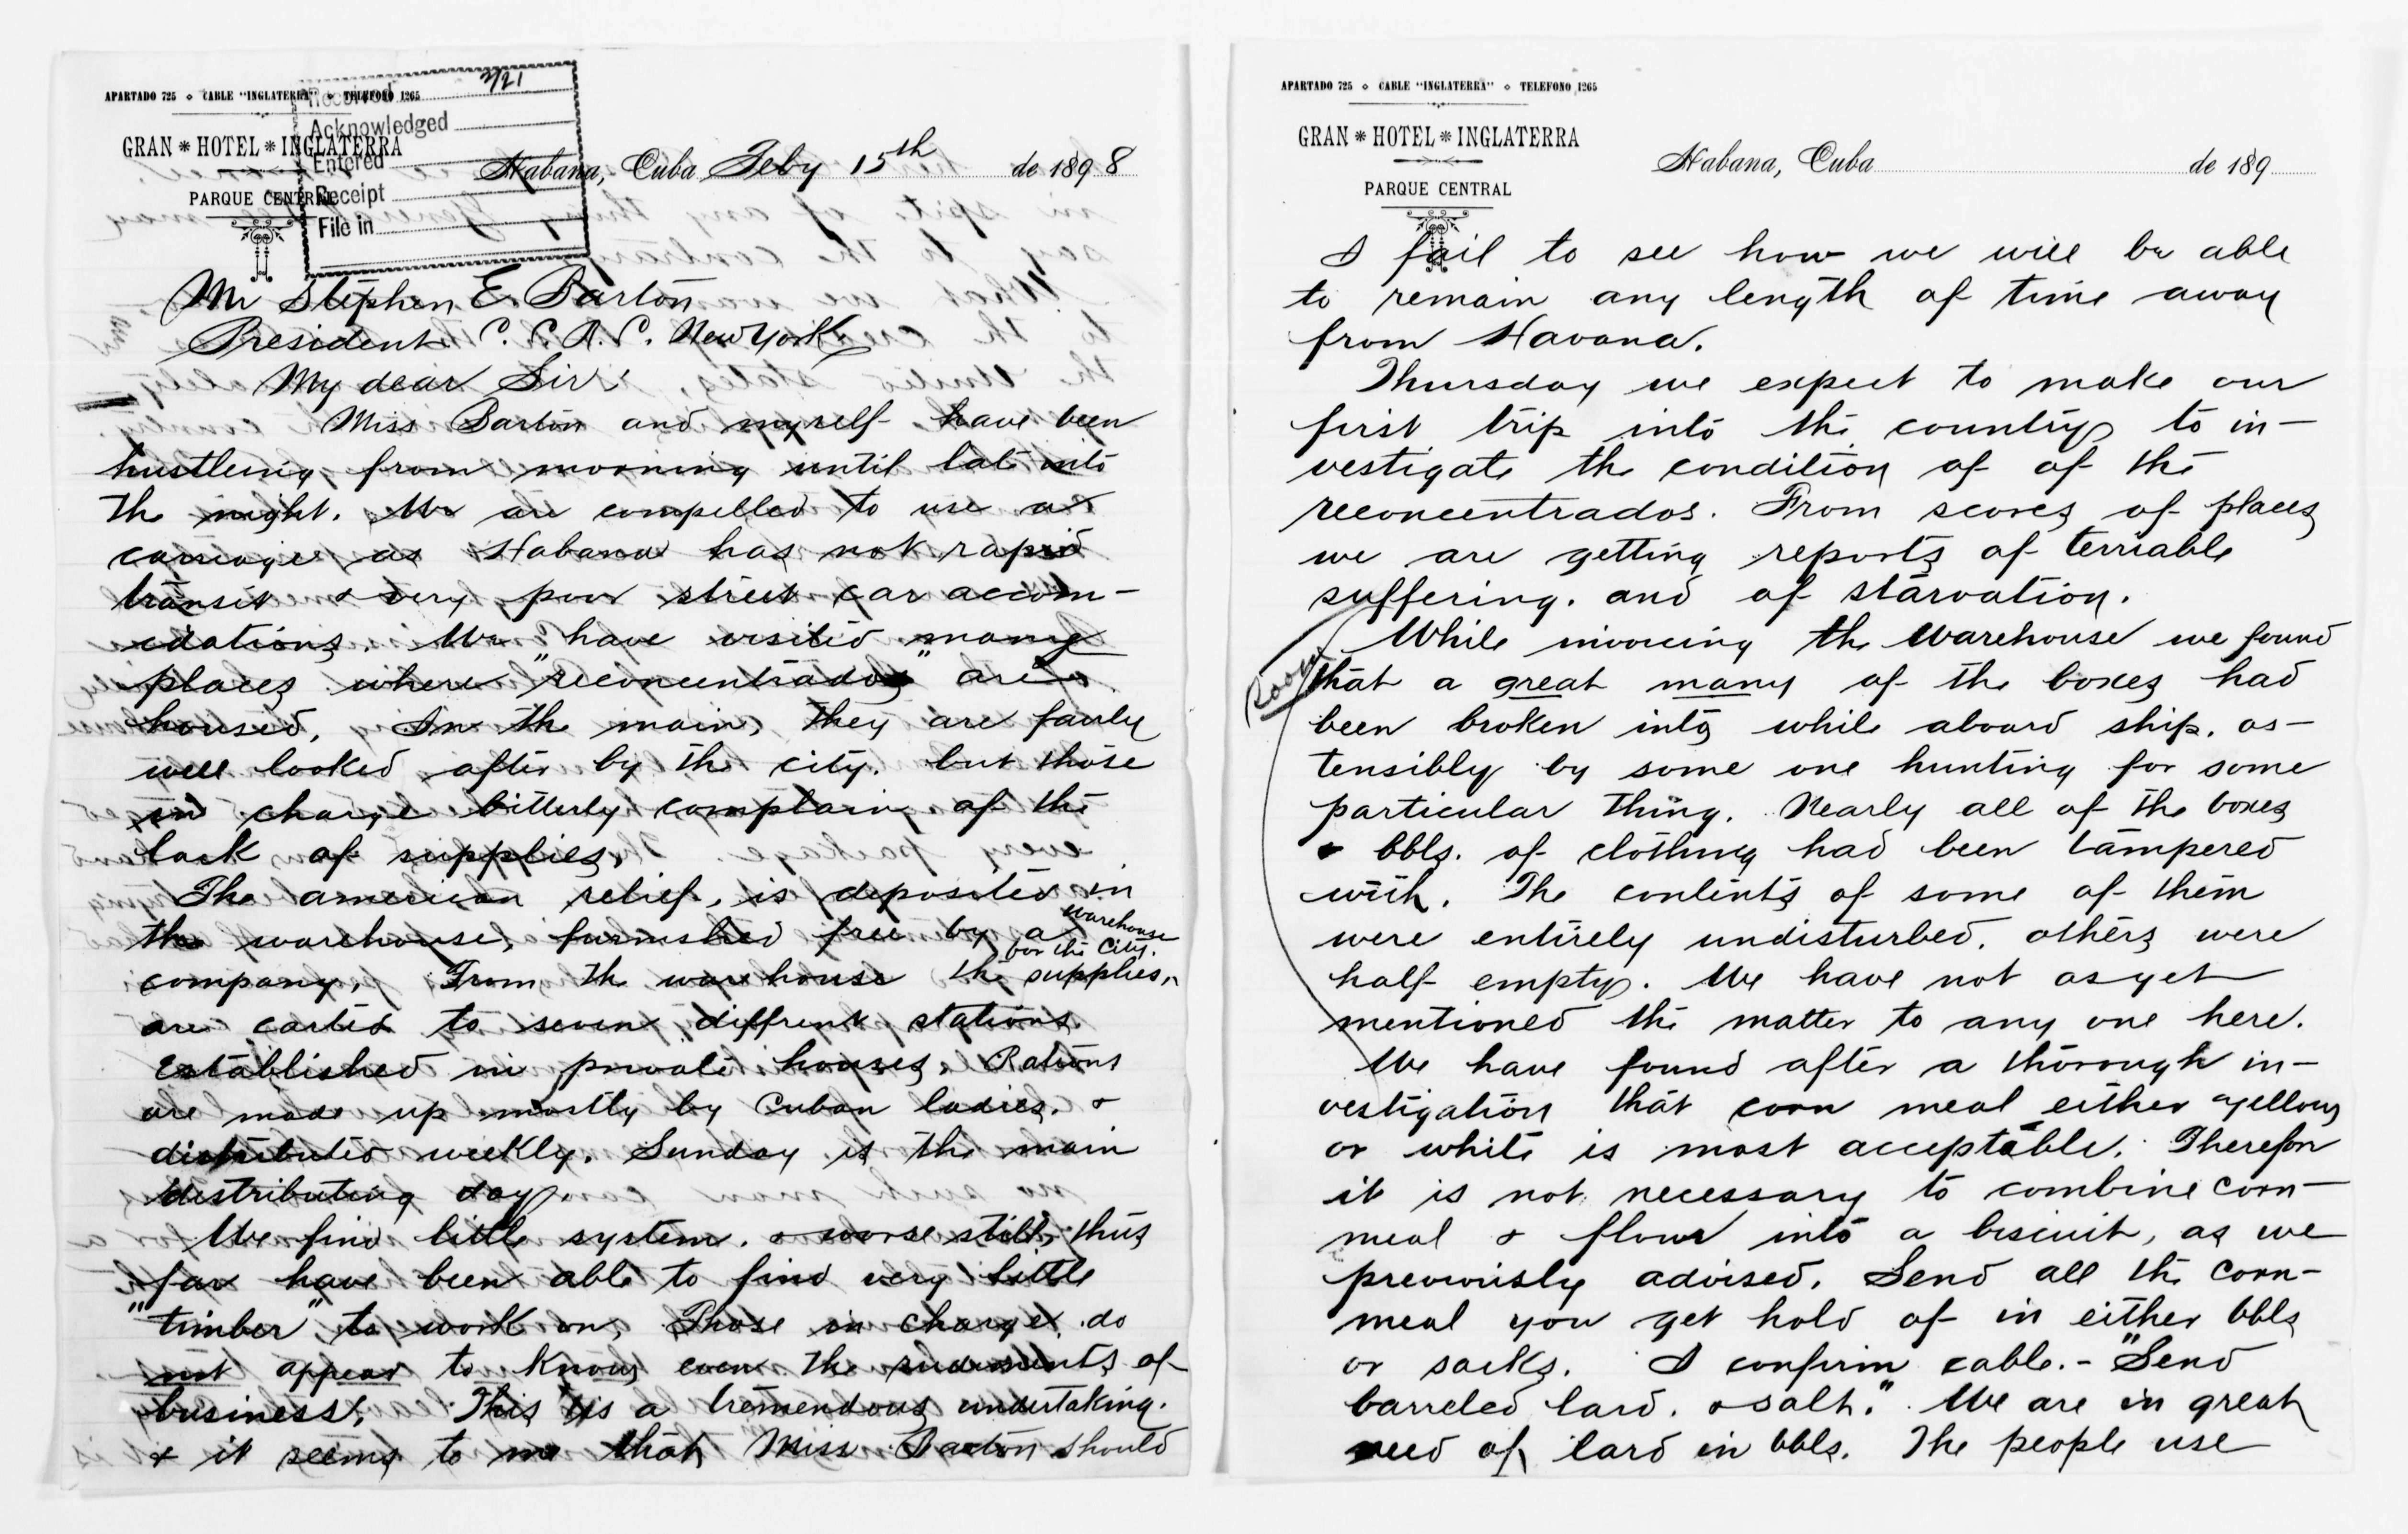 APARTADO 725 ⋄ CABLE "INGLATERRA" ⋄ TELEFONO 1265
GRAN * HOTEL * INGLATERRA
PARQUE CENTRAL
Received
Acknowledged
Entered
Receipt
File in
Habana, Cuba Feby 15th de 1898
Mr Stephen E. Barton
President C. C. R. C. New York
My dear Sir:
Miss Barton and myself have been
hustleing from morning until late into
the night. We are compelled to use a
carriage as Habana has not rapid
transit & very poor street car accom-
odations. We have visited many
places where "reconcentrados" are
housed. In the main, they are fairly
well looked after by the city. but those
in charge bitterly complain of the
lack of supplies.
The american relief, is deposited in
the warehouse, furnished free by a warehouse
company. From the warehouse the supplies, for the City.
are carted to seven diffrent stations.
Established in private houses. Rations
are made up mostly by Cuban ladies. &
distributed weekly. Sunday is the main
distributing day.
We find little system. & worse still, thus
far have been able to find very little
"timber" to work on. Those in charge do
not appear to know even the rudiments of
business. This is a tremendous undertaking.
& it seems to me that Miss Barton should
APARTADO 725 ⋄ CABLE "INGLATERRA" ⋄ TELEFONO 1265
GRAN * HOTEL * INGLATERRA
PARQUE CENTRAL
Habana, Cuba de 189
I fail to see how we will be able
to remain any length of time away
from Havana.
Thursday we expect to make our
first trip into the country to in-
vestigate the condition of of the
reconcentrados. From scores of places
we are getting reports of terriable
suffering. and of starvation.
While invoicing the Warehouse we found
Room
that a great many of the boxes had
been broken into while aboard ship. os-
tensibly by some one hunting for some
particular thing. Nearly all of the boxes
& bbls. of clothing had been tampered
with. The contents of some of them
were entirely undisturbed. others were
half empty. We have not as yet
mentioned the matter to any one here.
We have found after a thorough in-
vestigation that corn meal either yellow
or white is most acceptable. Therefor
it is not necessary to combine corn-
meal & flour into a biscuit, as we
previously advised. Send all the corn-
meal you get hold of in either bbls
or sacks. I confirm cable.- "Send
barreled lard. & salt." We are in great
need of lard in bbls. The people use